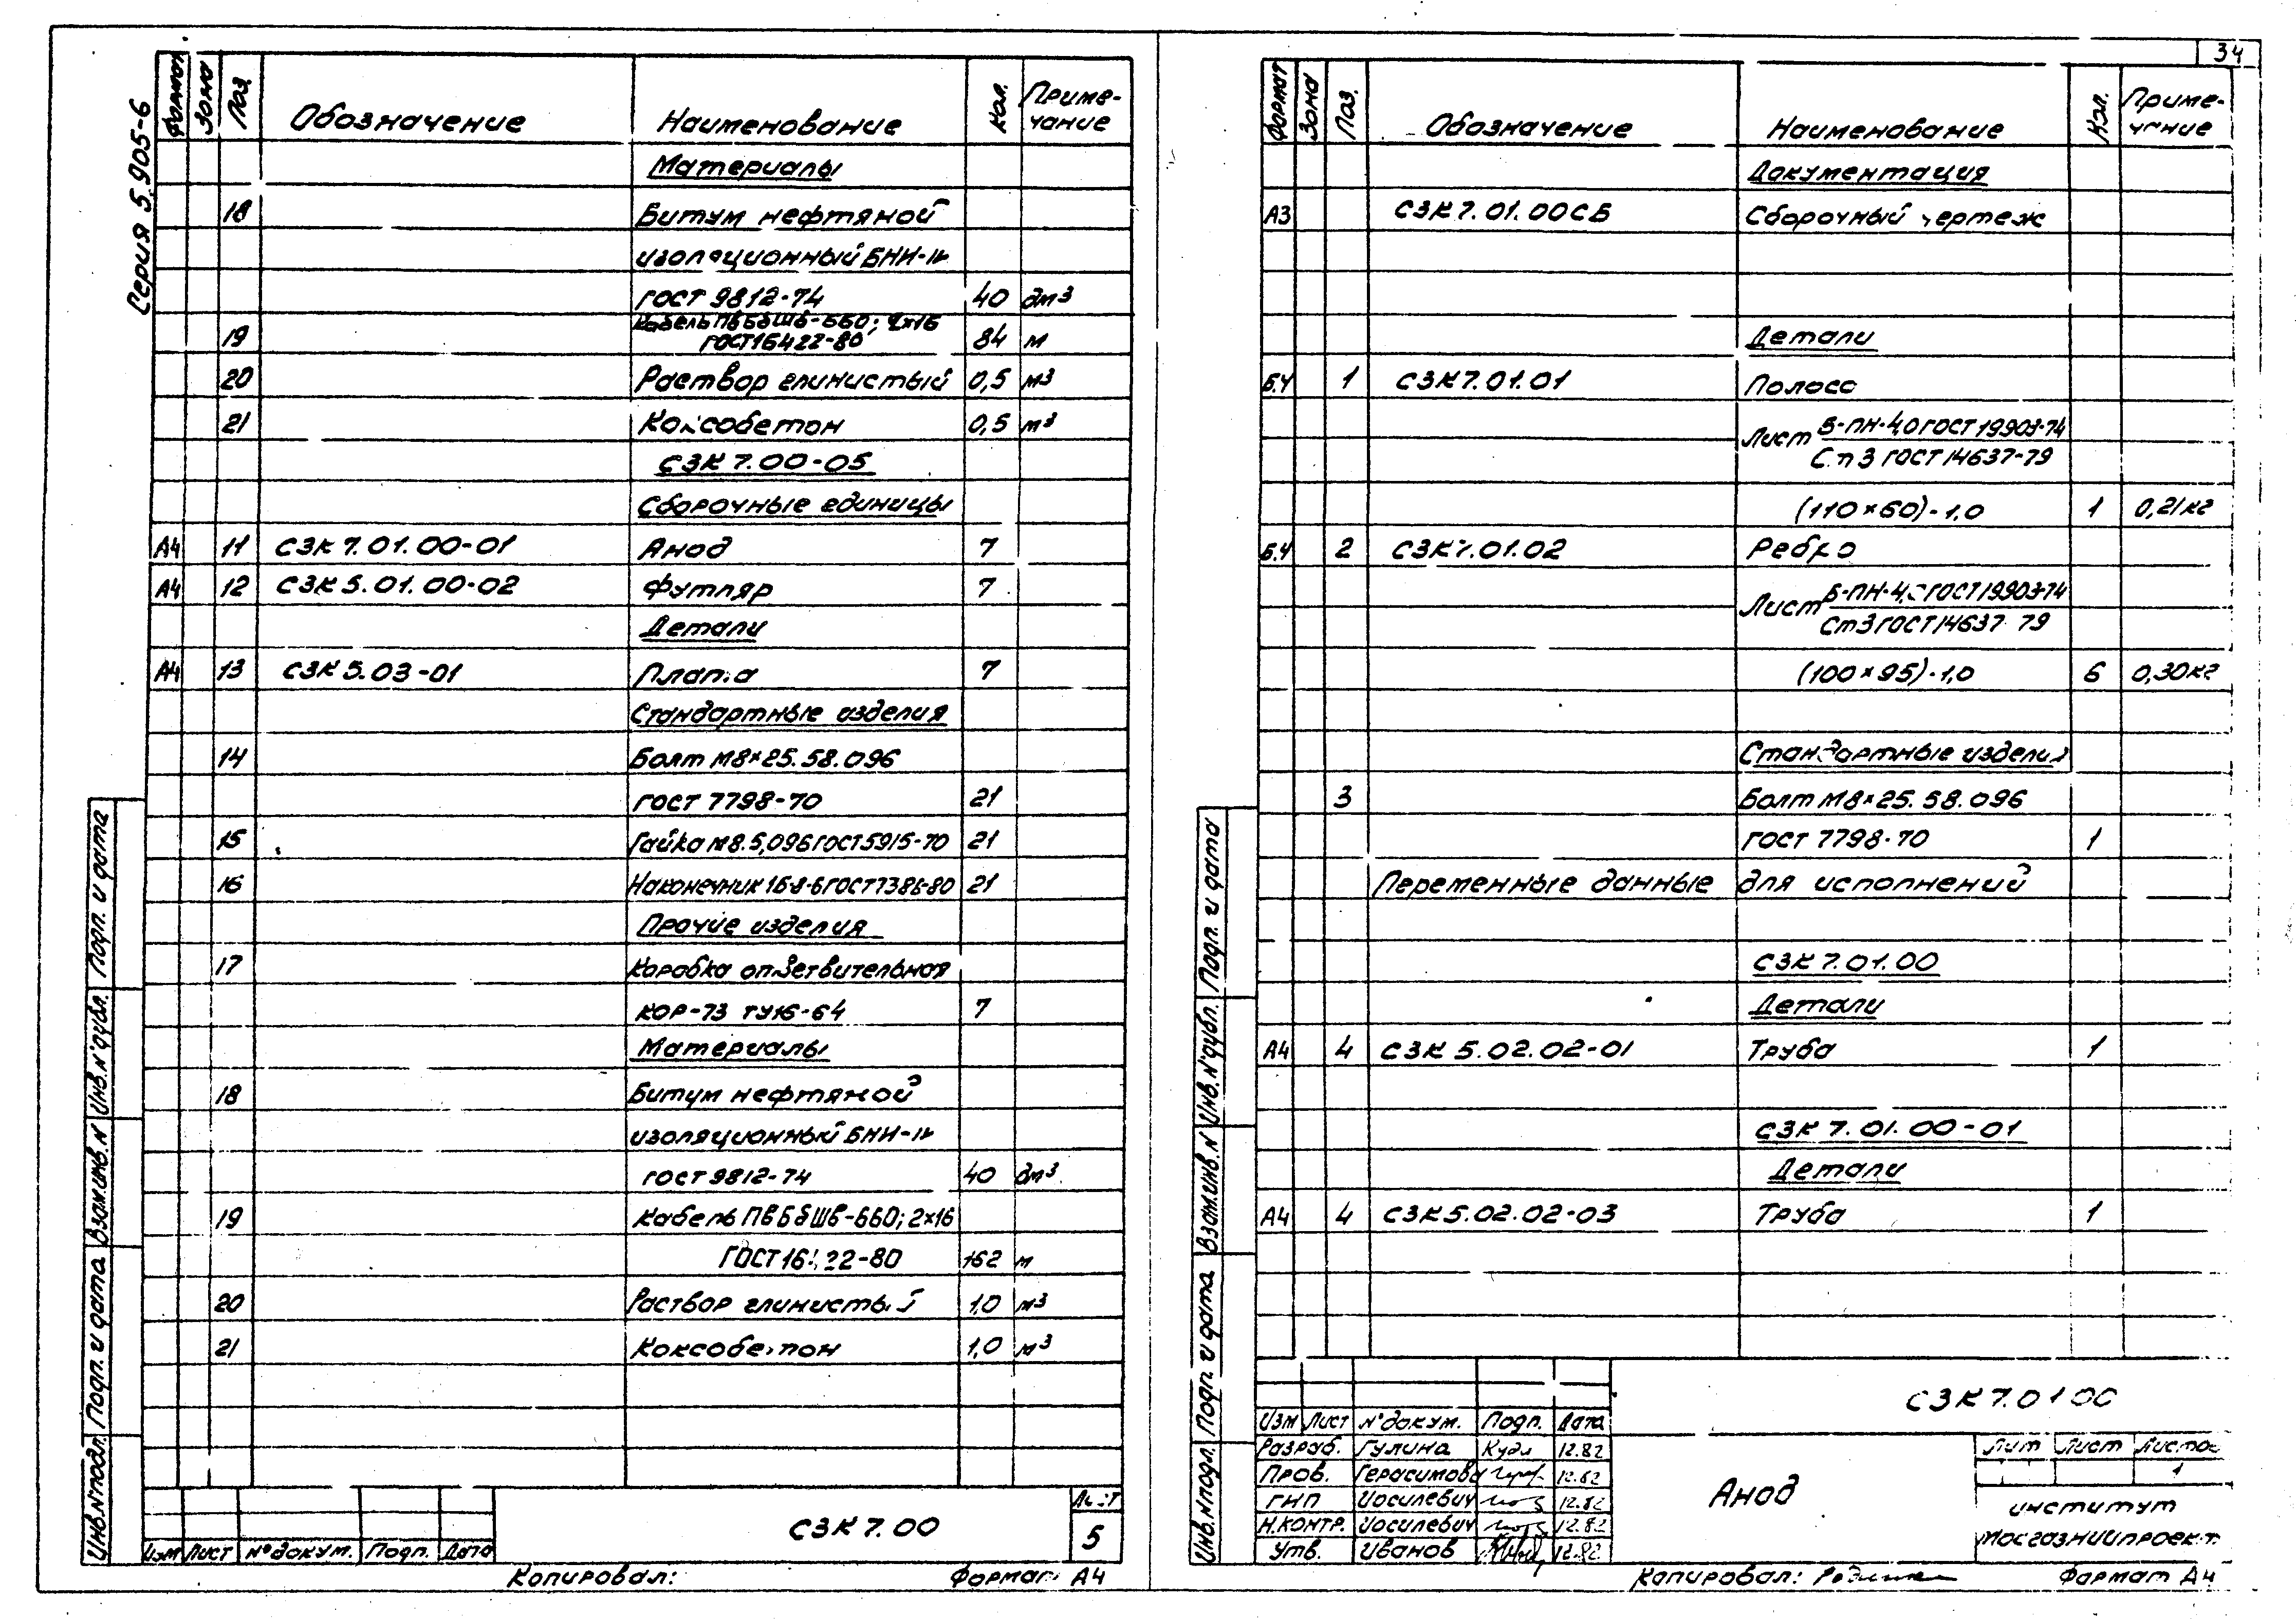 34
Серия 5.905-6
Формат Зона Поз. Обозначение Наименование Кол. Приме-
чание
Материалы
18 Битум нефтяной
изоляционный БНИ-IV
ГОСТ 9812-74 40 дм3
19 Кабель ПвБбШв-660; 2×16
ГОСТ16422-80 84 м
20 Раствор глинистый 0,5 м3
21 Коксобетон 0,5 м3
СЗК 7.00-05
Сборочные единицы
А4 11 СЗК 7.01.00-01 Анод 7
А4 12 СЗК 5.01.00-02 Футляр 7
Детали
А4 13 СЗК 5.03-01 Плата 7
Стандартные изделия
14 Болт М8×25.58.096
ГОСТ 7798-70 21
15 Гайка М8.5,096 ГОСТ5915-70 21
16 Наконечник 16-8-6 ГОСТ7386-80 21
Прочие изделия
17 Коробка ответвительная
КОР-73 ТУ16-64 7
Материалы
18 Битум нефтяной
изоляционный БНИ-IV
ГОСТ 9812-74 40 дм3
19 Кабель ПвБбШв-660; 2×16
ГОСТ 16422-80 162 м
20 Раствор глинистый 1,0 м3
21 Коксобетон 1,0 м3
Инв.N подл. Подп. и дата Взам.инв.N Инв.N°дубл. Подп. и дата
Изм Лист N° докум. Подп. Дата
СЗК 7.00
Лист
5
Копировал: Формат А4
Формат Зона Поз. Обозначение Наименование Кол. Приме-
чание
Документация
А3 СЗК 7.01.00СБ Сборочный чертеж
Детали
Б.Ч 1 СЗК 7.01.01 Полоса
Лист Б-ПН-4,0 ГОСТ 19903-74
Ст3 ГОСТ 14637-79
(110×60)-1,0 1 0,21кг
Б.Ч 2 СЗК 7.01.02 Ребро
Лист Б-ПН-4,0 ГОСТ 19903-74
Ст3 ГОСТ 14637 79
(100×95)-1,0 6 0,30кг
Стандартные изделия
3 Болт М8×25.58.096
ГОСТ 7798-70 1
Переменные данные для исполнений
СЗК 7.01.00
Детали
А4 4 СЗК 5.02.02-01 Труба 1
СЗК 7.01.00-01
Детали
А4 4 СЗК 5.02.02-03 Труба 1
Инв.N подл. Подп. и дата Взам.инв.N Инв.N°дубл. Подп. и дата
СЗК 7.01 00
Изм Лист N° докум. Подп. Дата
Разраб. Гулина 12.82
Пров. Герасимова 12.82
ГИП Иосилевич 12.82
Н.контр. Иосилевич 12.82
Утв. Иванов 12.82
Анод
Лит Лист Листов
1
институт
Мосгазниипроект
Копировал: Формат А4